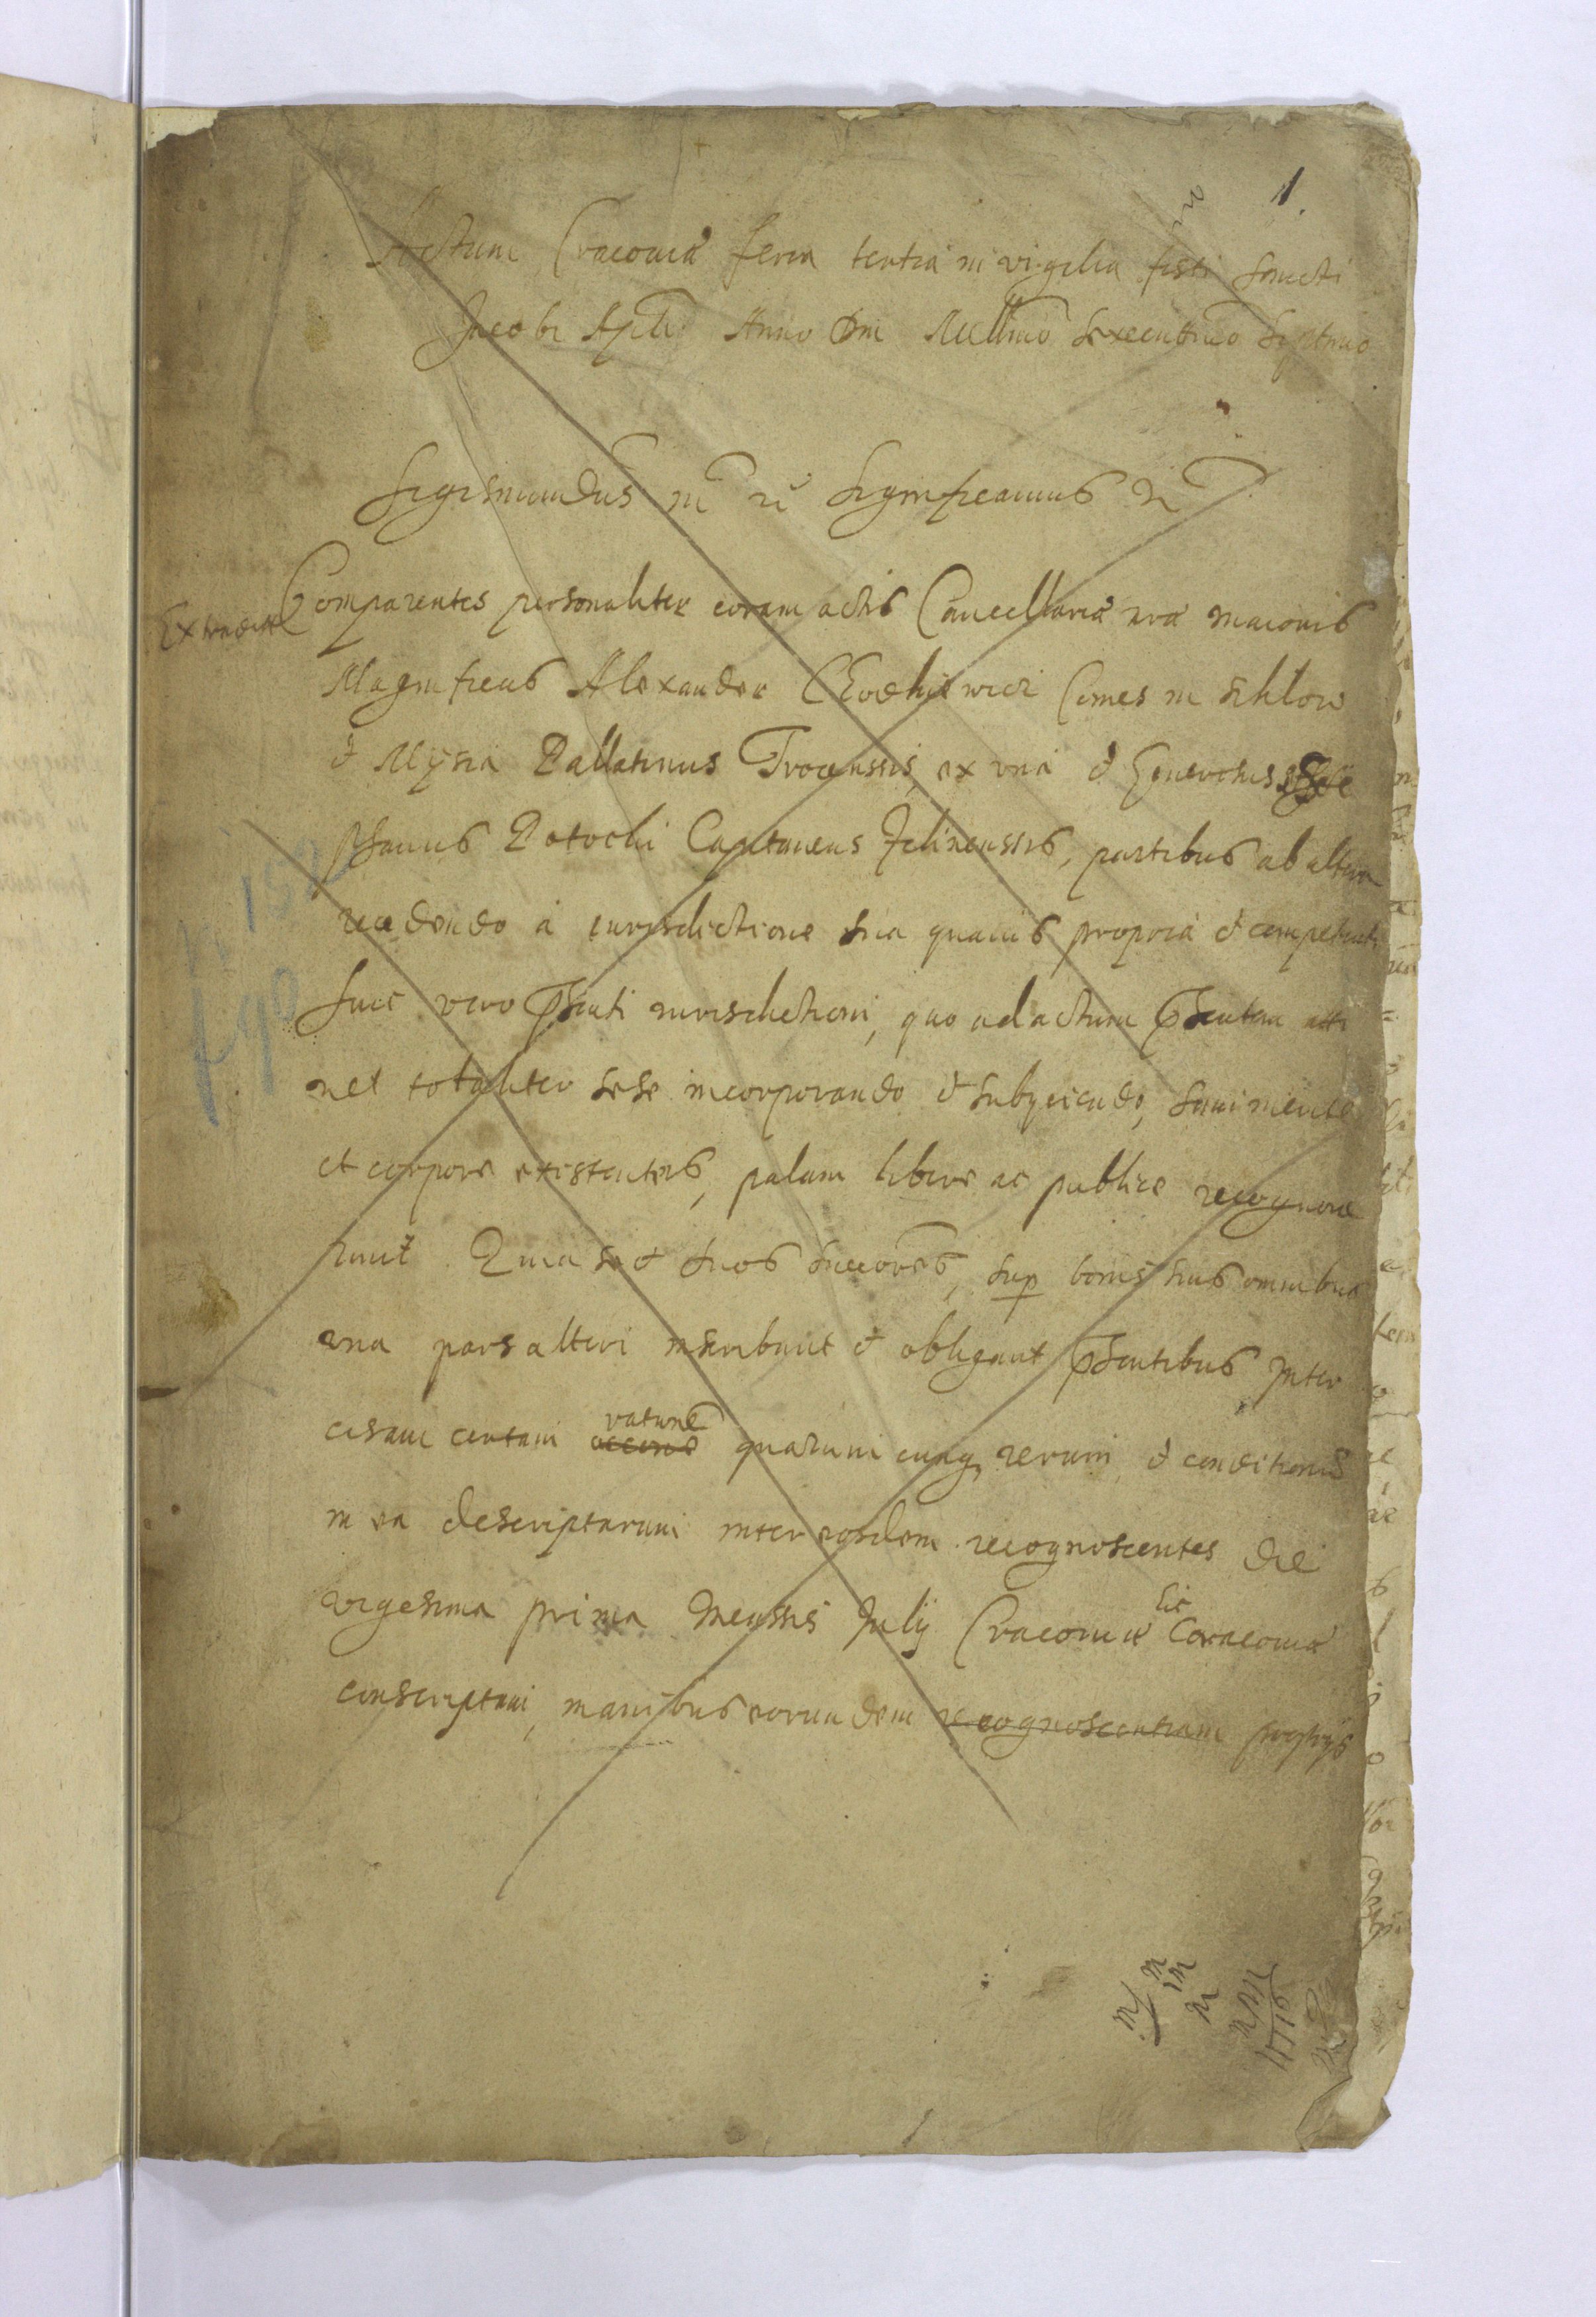 1.
Actum Cracoviæ feria tertia in vigilia festi Sancti
Jacobi Apli Anno Dni Millmo Sexcentmo Septmo
Sigismundus III etc. Significamus etc.
Extradit
Comparentes personaliter coram actis Cancellariæ nræ maioris
Magnificus Alexander Chodkiewicz Comes in Schlow
et Mysza Pallatinus Trocenssis, ex una et Generosus
Stephanus Potocki Capitaneus Felinenssis, partibus ab altera
recedendo à iurisdictione sua quavis propria et competenti
huic vero pnti iurisdictioni, quo ad actum pntem atti
net totaliter sese incorporando et subyciendo, sani mente
et corpore existentes, palam libere ac publice recognove
runt. Quia se et suos succores, sup bonis suis omnibus
una pars alteri inscribunt et obligant pntibus Inter
cisam certam ratione quarumcunq rerum et conditionu
in ea descriptarum inter eosdem recognoscentes die
vigesima prima Menssis July Cracoviæ hic Cracoviæ
conscriptam, manibus eorundem recognoscentium proprys